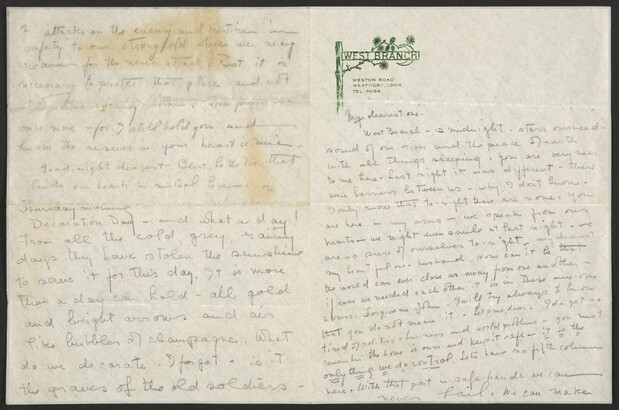 WEST BRANCH
WESTON ROAD
WESTPORT, CONN.
TEL. 4064
My dearest one -
West Branch - is midnight - stars overhead -
sound of our river and the peace of earth
with all things sleeping. You are very near
to me here. Last night it was different - there
were barriers between us - why, I don't know -
I only know that to-night there are none. You
are here in my arms - we speak from our
hearts - we might even smile at last night - we
are so sure of ourselves to-night - my dearest
my husband, how can it be that
the world can ever close us away from one another -
if ever we needed each other it is in these
hours. Forgive me John. I will try always to know
that you do not mean it - I do get so
tired of politics - business and world problems - you must
remember the home is ours and keep it safe - it is the
only thing we do control. Lets have no fifth column
here. With that post in safe hands we can
never fail. We can make
2 attacks on the enemy and retire in
safety to our stronghold where we may
for the next attack. But it is
necessary to protect that place and not
once more - for I still hold you and
know the answer in your heart is mine.
Good night dearest - Bless the tie that
binds our hearts in mutual love.
Thursday morning
Decoration Day - and what a day!
From all the cold grey, rainy
days they have stolen the sunshine
to save it for this day. It is more
than a day can hold - all gold
and bright arrows and air
like bubbles of champagne. What
do we decorate I forgot - is it
the graves of the old soldiers -